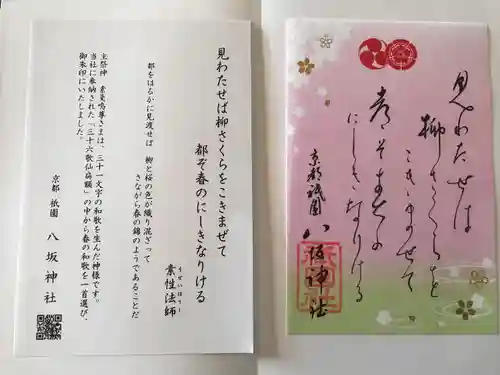 見わたせば柳さくらをこきまぜて
都ぞ春のにしきなりける
素性法師
そせいほうし
都をはるかに見渡せば　柳と桜の色が織り混ざって
さながら春の錦のようであることだ
主祭神　素戔嗚尊さまは、三十一文字の和歌を生んだ神様です。
当社に奉納された「三十六歌仙扁額」の中から春の和歌を一首選び、
御朱印にいたしました。
京都　祇園　八坂神社
見わたせは
柳さくらを
こきまぜて
都そ春の
にしきなりける
京都祇園　八坂神社